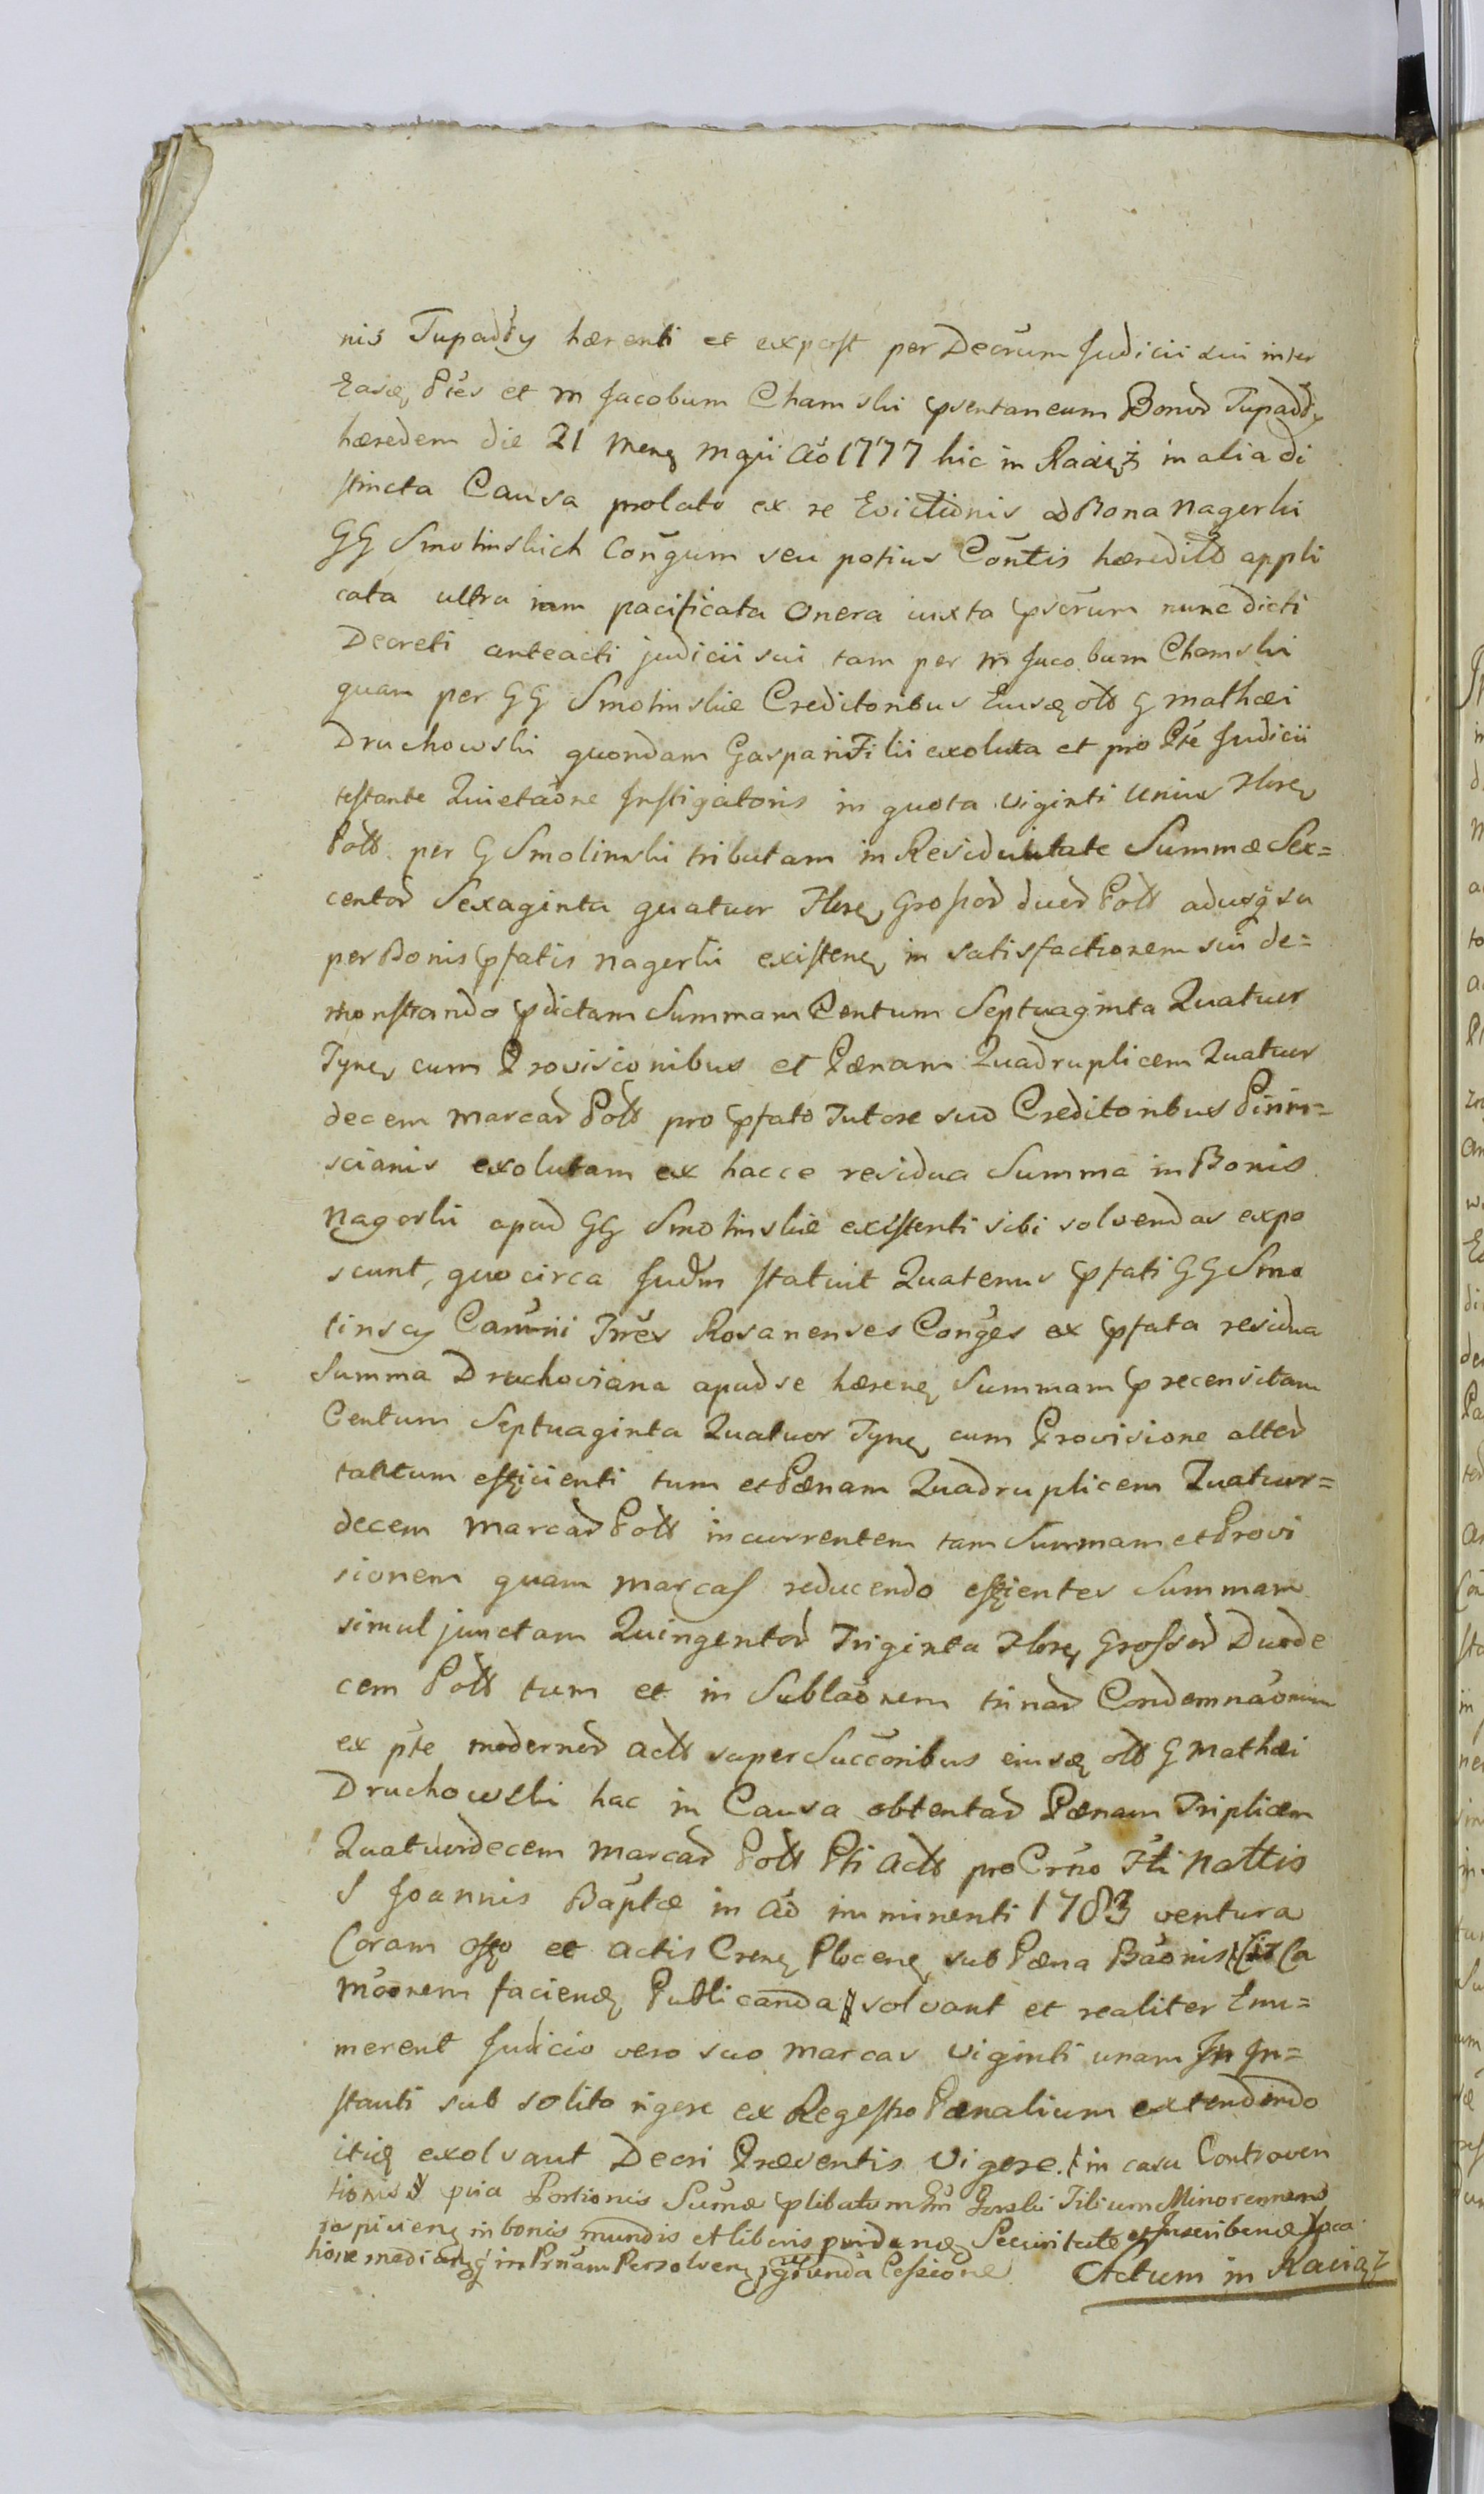 nis Tupadły hærenti et expost per Decrum Judicii sui inter
Easq Ptes et m Jacobum Chamski psentaneum Bonor Tupadły
hæredem die 21 Mens Maii Ao 1777 hic in Raciąż in alia di
stincta Causa prolato ex re Evictionis ad Bona Nagorki
GG Smolinskich Congum seu potius Contis hæredits appli
cata ultra iam pacificata Onera iuxta pscrum nunc dicti
Decreti anteacti judicii sui tam per m Jacobum Chamski
quam per GG Smolinskie Creditoribus Eiusq olt G Mathæi
Druchowski quondam Gaspari Filii exoluta et pro Pte Judicii
testante Quietaone Instigatoris in quota Viginti Unius Flore
Polt per G Smolinski tributam in Residuitate Summæ Sex=
centor Sexaginta quatuor Flore, Grossor duor Polt adusq su
per Bonis pfatis Nagorki existen in satisfactionem sui de=
monstrando pdictam Summam Centum Septuaginta Quatuor
Tyne cum Provisionibus et Pænam Quadruplicem Quatuor
decem marcar Polt pro pfato Tutore suo Creditoribus
scianis exolutam ex hacce residua Summa in Bonis
Nagorki apud GG Smolinskie existenti sibi solvendas expo
scunt, quocirca Judm statuit Quatenus pfati GG Smo
linscy Camrii Trres Rosanenses Conges ex pfata residua
Summa Druchoviana apud se hæren Summam precensitam
Centum Septuaginta Quatuor Tyne cum Provisione alter
tantum efficienti tum et Pænam Quadruplicem Quatuor=
decem Marcar Polt incurrentem tam Summam et Provi
sionem quam Marcas reducendo effientes Summam
simul junctam Quingentor Triginta Flore Grossor Duode
cem Polt tum et in Sublaonem trinar Condemnaonum
ex pte modernor Actt super Succoribus eiusq olt G Mathæi
Druchowski hac in Causa obtentar Pænam Triplicem
Quatuordecem Marcar Polt Pti Actt pro Crno Fti Nattis
S Joannis Baptæ in Ao imminenti 1783 ventura
Coram offo et Actis Cren Plocen sub Pæna Baonis Ca
Moonem faciend Publicanda solvant et realiter Enu=
merent Judicio vero suo Marcas Viginti unam In In=
stanti sub solito rigore ex Regestro Pænalium extendendo
itiq exolvant Decri Præsentis Vigore. in casu Controven
tionis Portionis Sumæ plibatum Gorski Filium Minorennem
in bonis mundis et liberis Securitate et Inscribend
in Prnam Persolven Cessione Actum in Raciąż